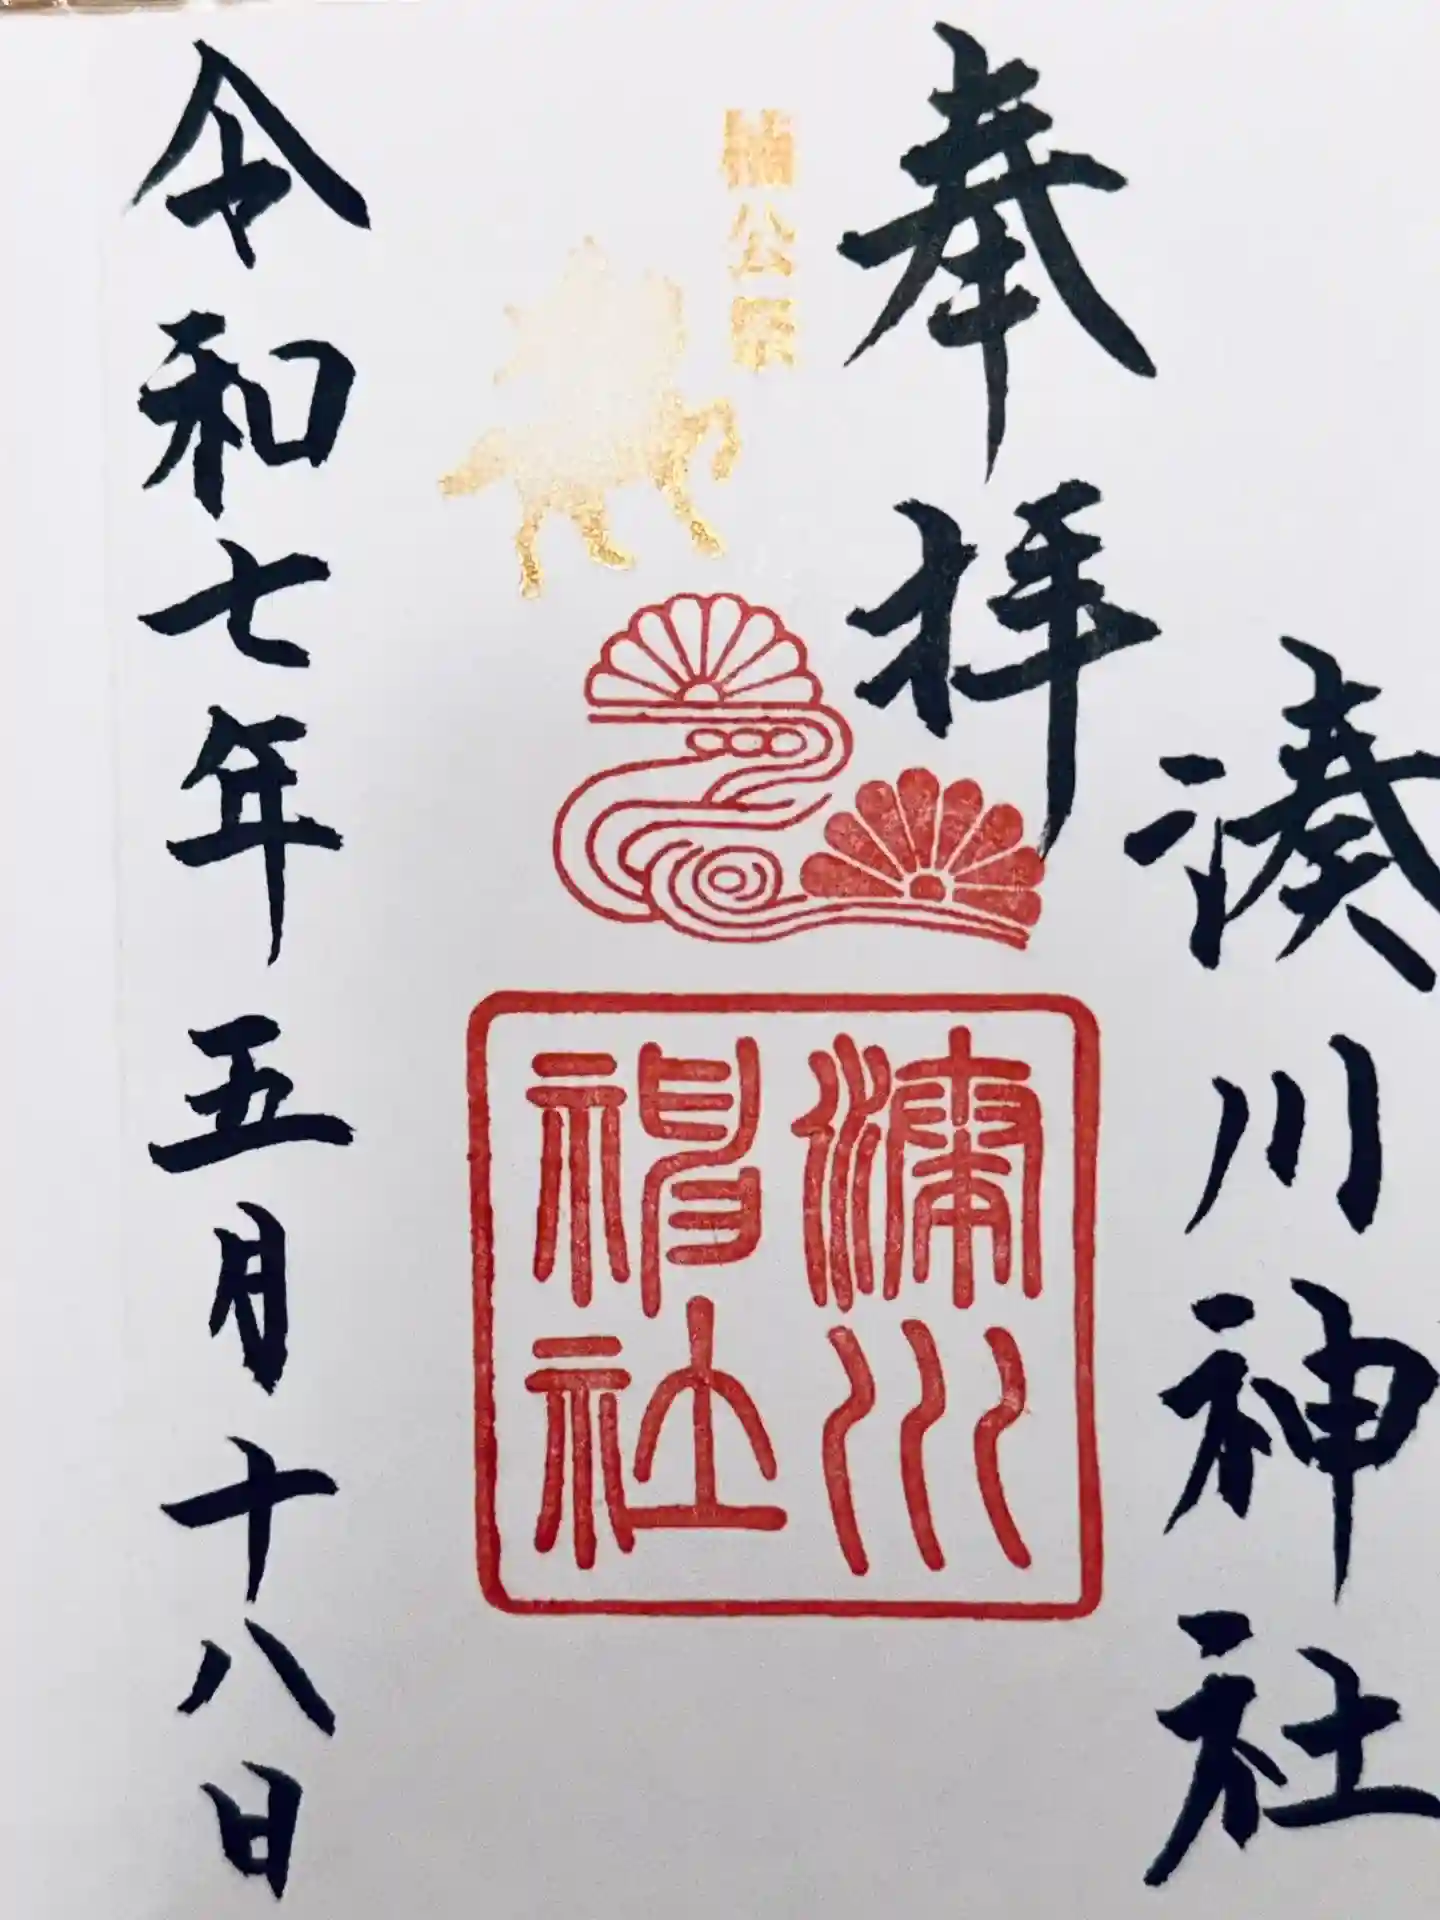 湊川神社
奉拝
楠公祭
湊川
神社
令和七年五月十八日